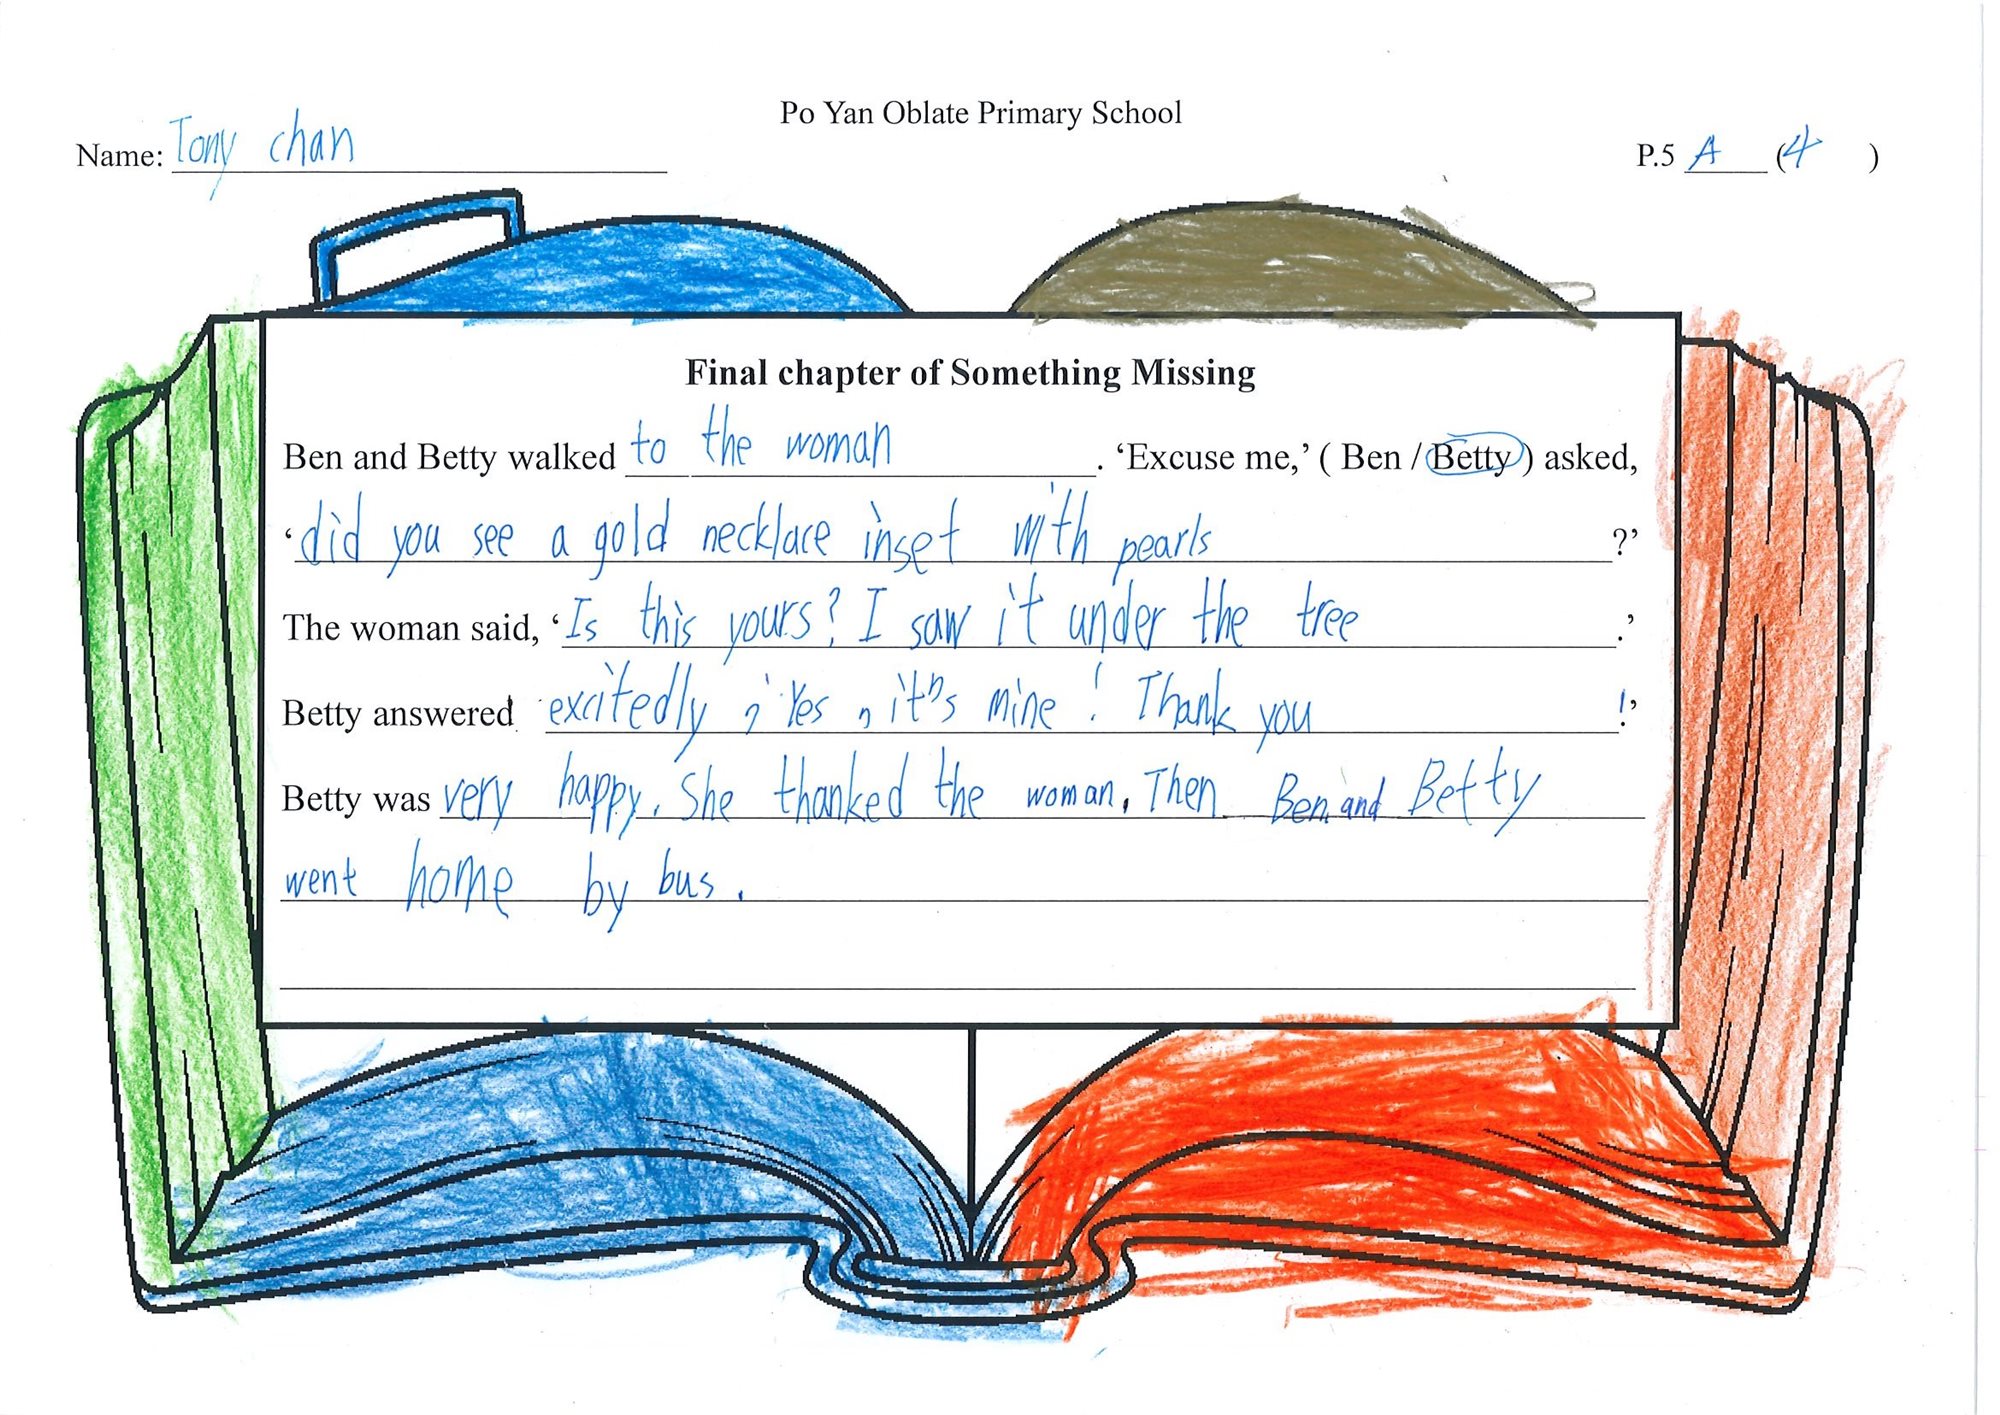 Po Yan Oblate Primary School
Name: Tony chan P.5 A (4 )
Final chapter of Something Missing
Ben and Betty walked to the woman. ‘Excuse me,’ ( Ben / Betty ) asked,
‘did you see a gold necklace inset with pearls?’
The woman said, ‘Is this yours? I saw it under the tree.’
Betty answered excitedly, ‘Yes, it's mine! Thank you!’
Betty was very happy. She thanked the woman. Then Ben and Betty
went home by bus.